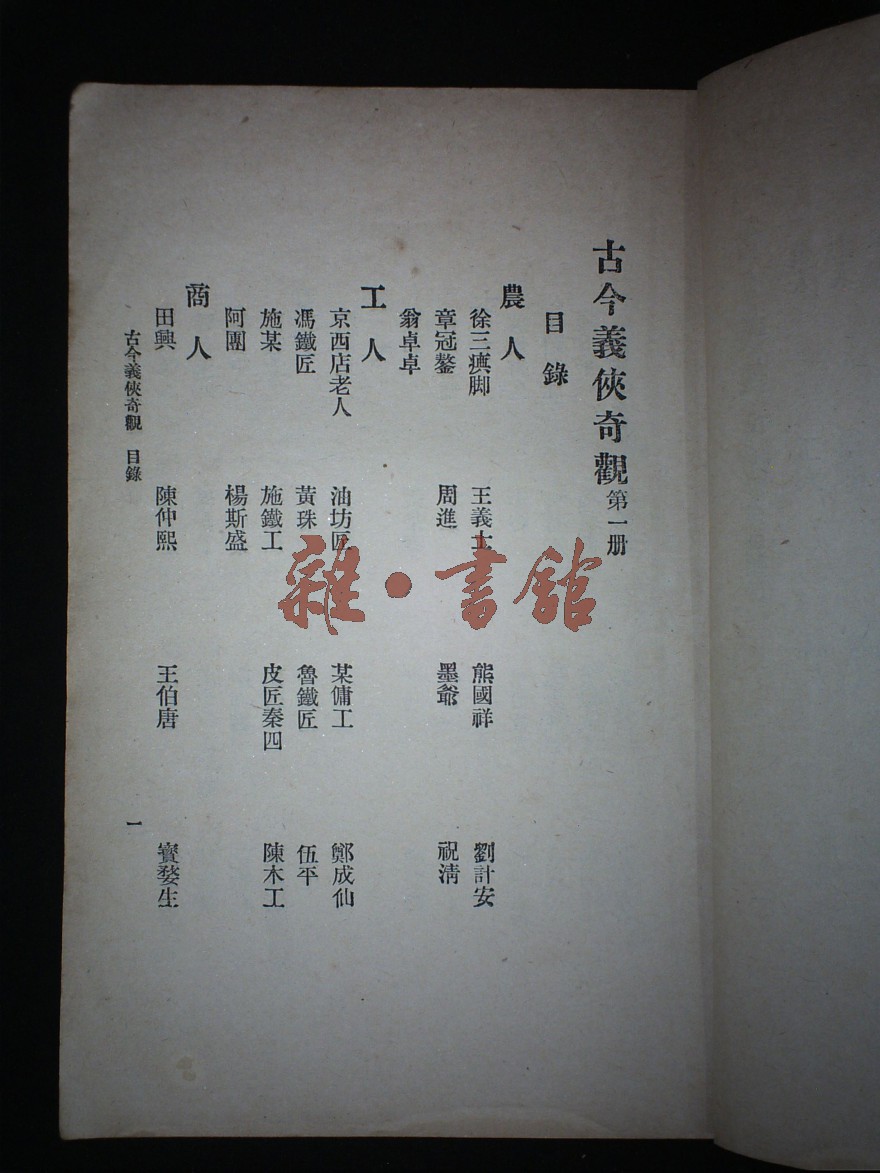 古今義俠奇觀第一册
目錄
農人
徐三瘼脚 王義士 熊國祥 劉計安
章冠鏊 周進 墨爺 祝淸
翁卓卓
工人
京西店老人 油坊匠 某傭工 鄭成仙
馮鐵匠 黃珠 魯鐵匠 伍平
施某 施鐵工 皮匠秦四 陳木工
阿團 楊斯盛
商人
田興 陳仲熙 王伯唐 竇婺生
古今義俠奇觀 目錄 一
雜·書館